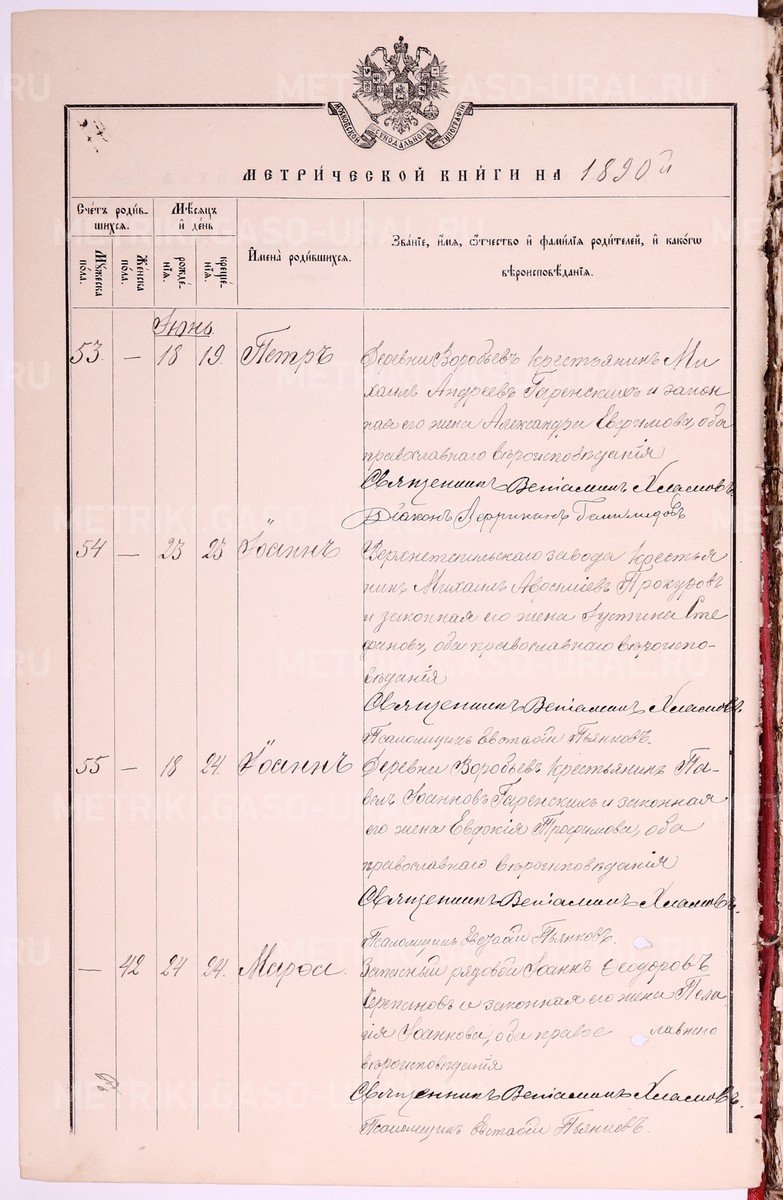 МОСКОВСКОЙ СѴНОДАЛЬНОЙ ТИПОГРАФІИ
МЕТРИ́ЧЕСКОЙ КНИ́ГИ НА 1890 й
Сче́тъ роди́в-
шихсѧ.
Мꙋ́жеска по́ла.
Же́нска по́ла.
Мѣ́сѧцъ
и҆ де́нь
рожде́-
нїѧ.
креще́-
нїѧ.
И҆мена̀ роди́вшихсѧ.
Зва́нїе, и҆́мѧ, ѻ҆́тчество и҆ фами́лїѧ роди́телей, и҆ како́гѡ
вѣроисповѣ́данїѧ.
Іюнь
53 — 18 19. Петръ Деревни Воробьевъ крестьянинъ Ми-
хаилъ Андреевъ Гаренскихъ и закон-
ная его жена Александра Евфимова, оба
православнаго вѣроисповѣданія
Священникъ Веніаминъ Хламовъ
Діаконъ Африканъ
54 — 23 23 Іоаннъ завода крестья
нинъ Михаилъ Прокуровъ
и законная его жена Іустина Сте
фанова, оба православнаго вѣроиспо-
вѣданія
Священникъ Веніаминъ Хламовъ.
Псаломщикъ Евстафій Пьянковъ.
55 — 18 24. Іоаннъ Деревни Воробьевъ крестьянинъ Па-
велъ Іоанновъ Гаренскихъ и законная
его жена Трофимова, оба
православнаго вѣроисповѣданія
Священникъ Веніаминъ Хламовъ.
Псаломщикъ Евстафій Пьянковъ.
— 42 24 24. Марѳа. Запасный рядовой Іоаннъ Ѳеодоровъ
и законная его жена Пела
гія Іоаннова, оба православнаго
вѣроисповѣданія
Священникъ Веніаминъ Хламовъ.
Псаломщикъ Евстафій Пьянковъ.
METRIKI.GASO-URAL.RU